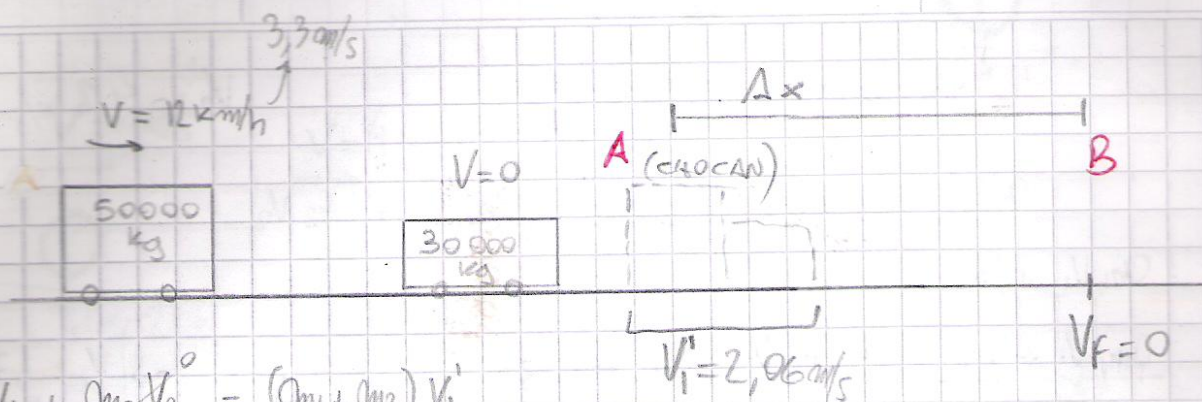 3,3 m/s
V = 12 km/h
Δx
A (CHOCAN) B
V=0
50000 kg
30000 kg
V₁' = 2,06 m/s
V_F = 0
m₂V₂⁰ = (m₁+m₂) V₁'